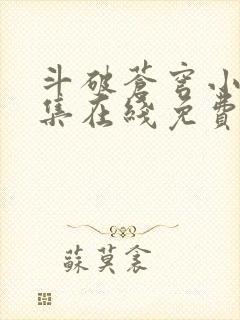 斗破蒼穹小
集在綫免費
蘇莫衾